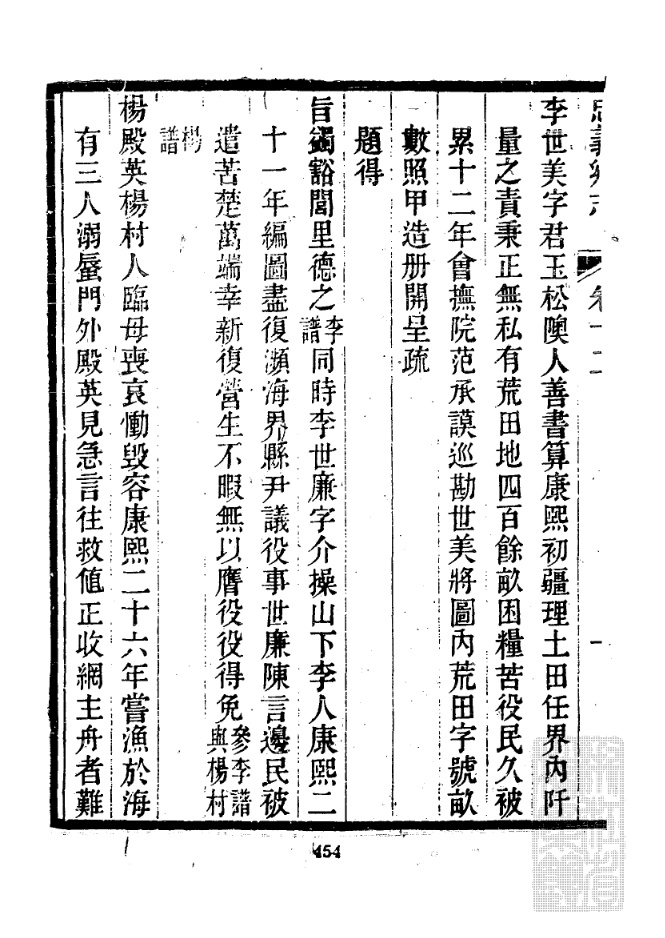 忠義鄉志 卷十二
李世美字君玉松隩人善書算康熙初疆理土田任界內阡
量之責秉正無私有荒田地四百餘畝困糧苦役民久被
累十二年會撫院范承謨巡勘世美將圖內荒田字號畝
數照甲造册開呈疏
題得
旨蠲豁閭里德之李譜同時李世廉字介操山下李人康熙二
十一年編圖盡復瀕海界縣尹議役事世廉陳言邊民被
遣苦楚萬端幸新復營生不暇無以膺役役得免參李譜與楊村
楊譜
楊殿英楊村人臨母喪哀慟毀容康熙二十六年嘗漁於海
有三人溺蜃門外殿英見急言往救値正收網主舟者難
454